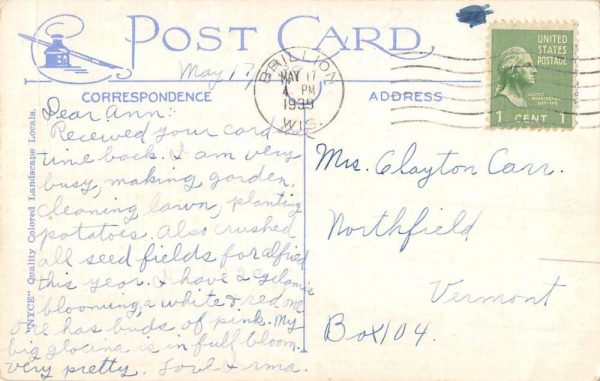 POST CARD
May 17/
BRILLION
MAY 17
4 PM
1939
WIS.
UNITED
STATES
POSTAGE
1 CENT 1
CORRESPONDENCE
ADDRESS
"NYCE" Quality Colored Landscape Locals.
Dear Ann:
Received your card a
time back. I am very
busy, making garden,
cleaning lawn, planting
potatoes. Also crushed
all seed fields for alfred
this year. I have 2
blooming, a white & red, and
one has buds of pink. My
big gloxina is in full bloom.
very pretty. Love Irma.
Mrs. Clayton Carr.
Northfield
Vermont
Box 104.